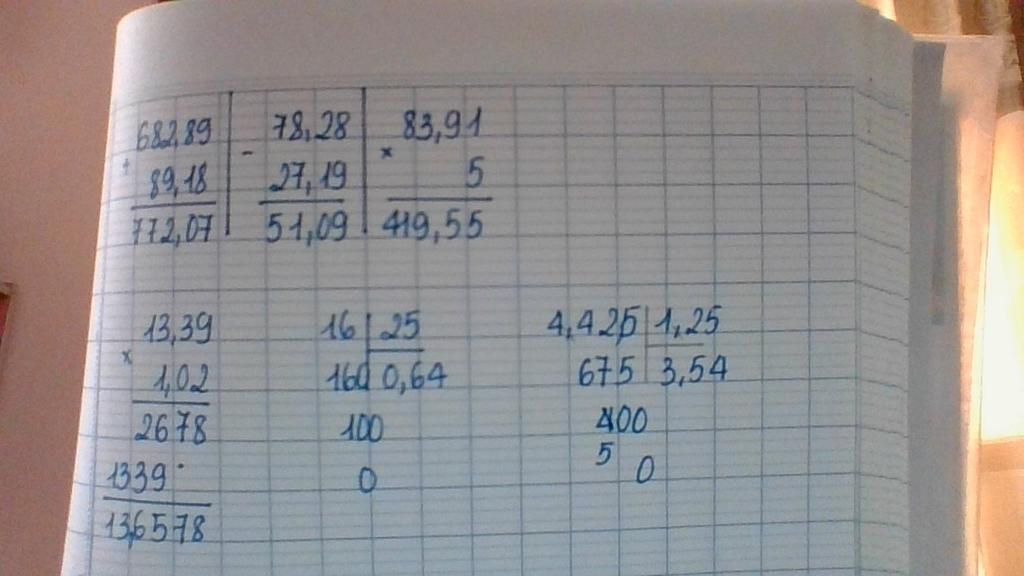 682,89 78,28 83,91
+ - ×
89,18 27,19 5
772,07 51,09 419,55
13,39 16 25 4,425 1,25
×
1,02 160 0,64 675 3,54
2678 100 400
1339 0 5 0
13,6578